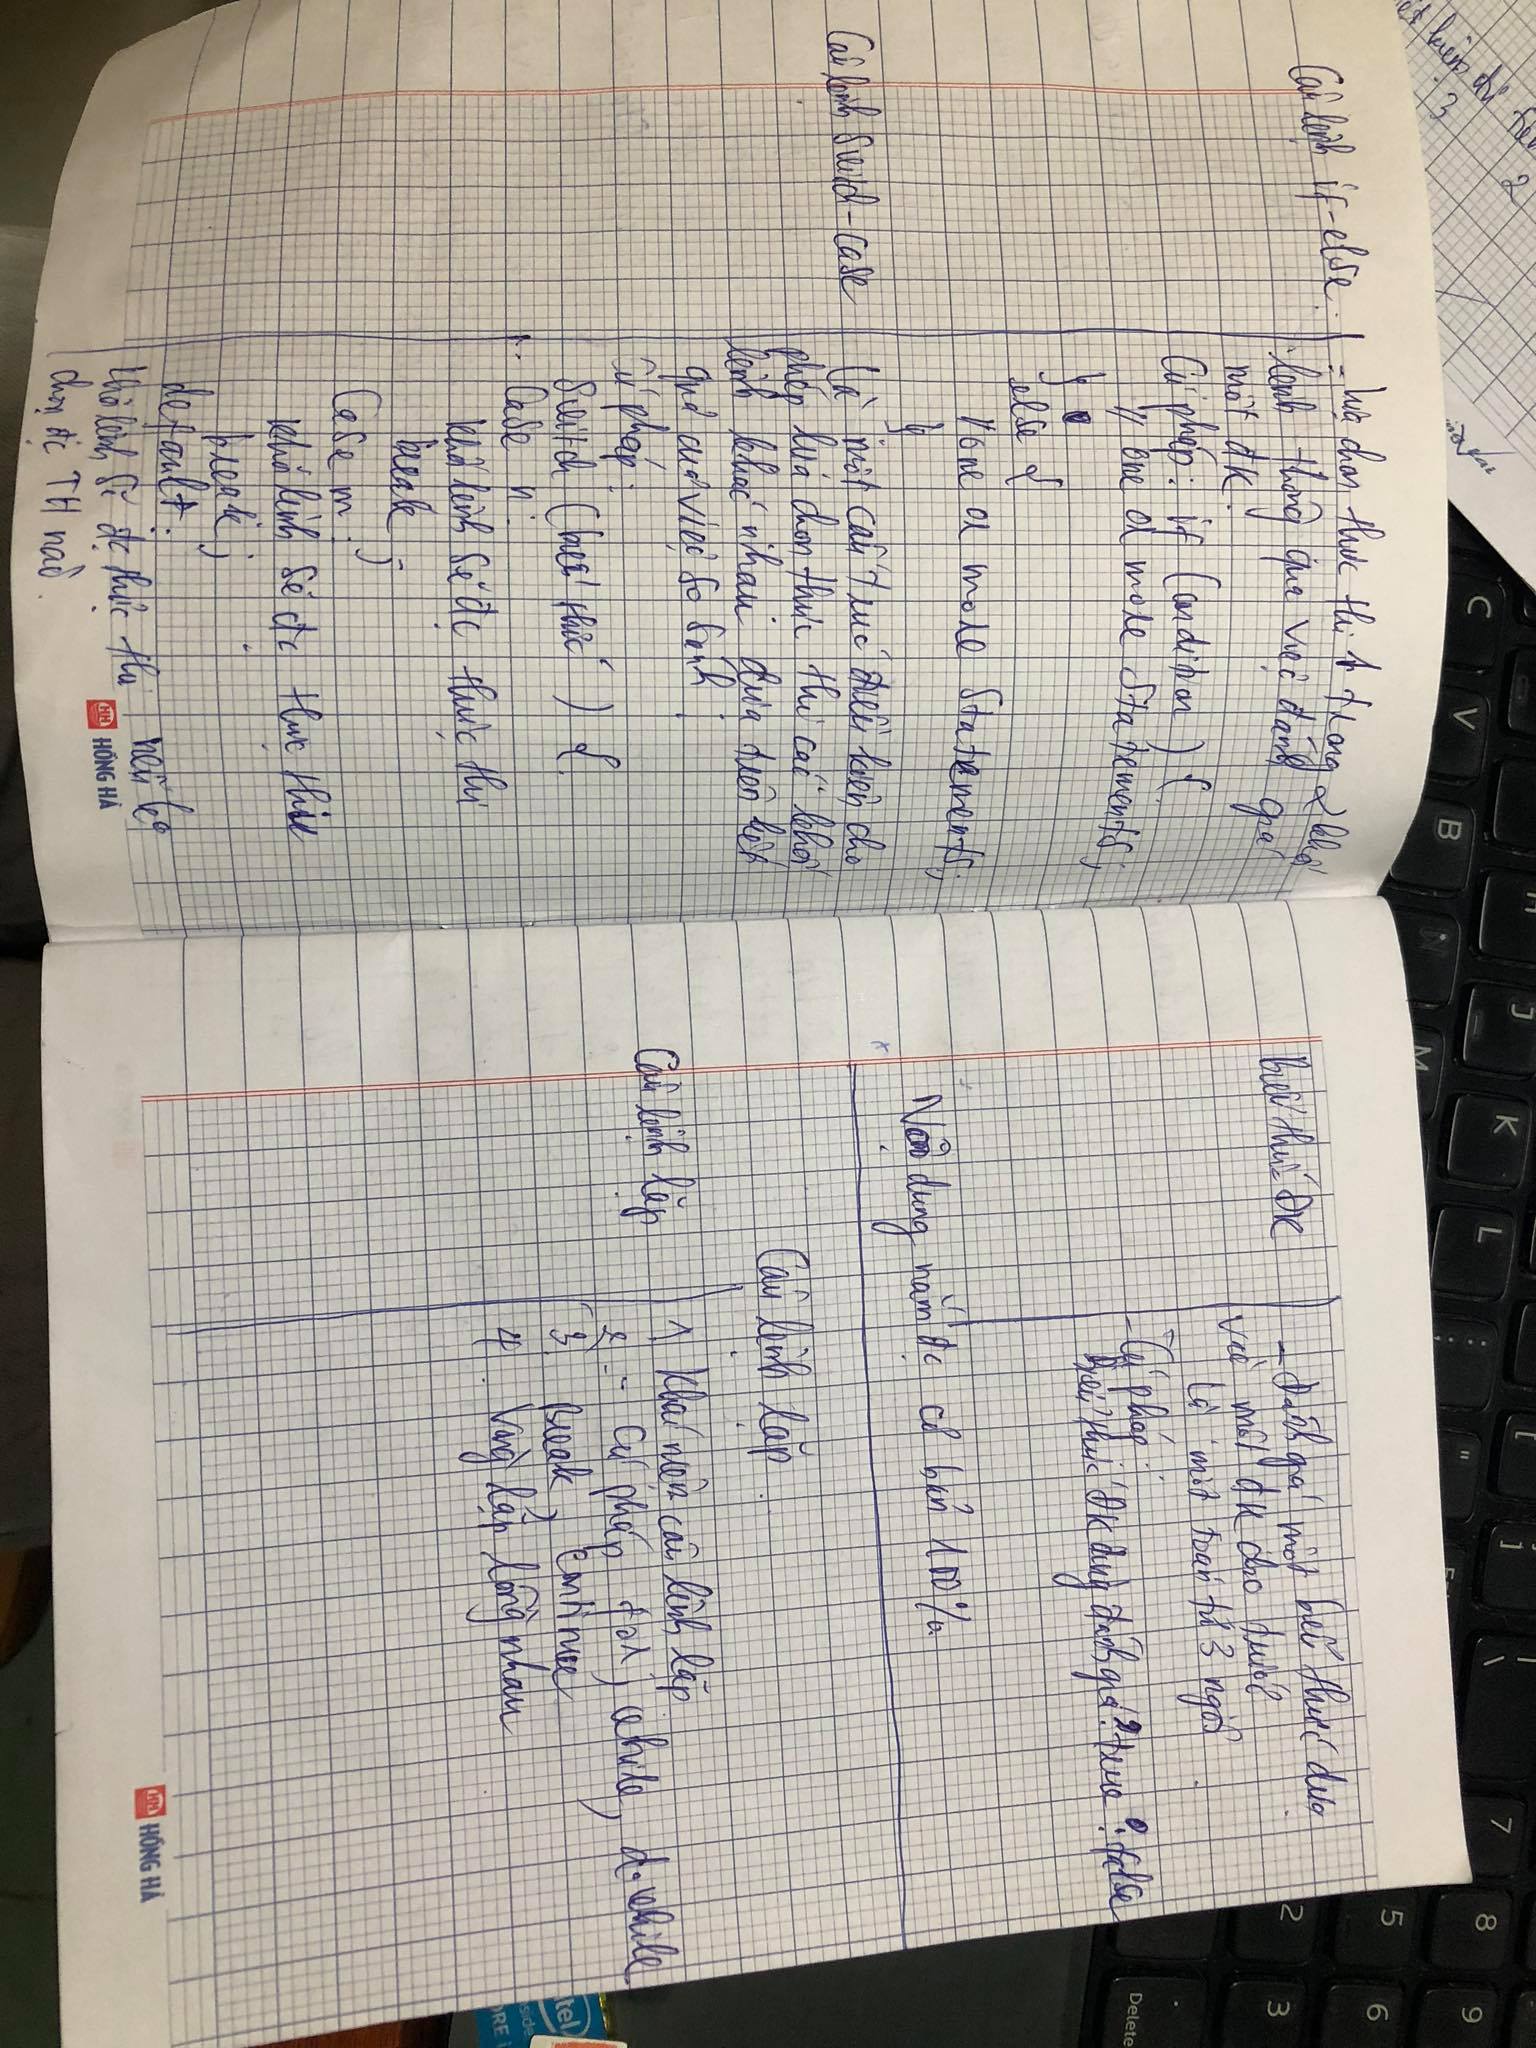 Câu lệnh if-else.
- Lựa chọn thực thi 1 trong 2 khối
lệnh thông qua việc đánh giá
một đk.
Cú pháp: if (condition) {
// one or more statements;
}
else {
// one or more statements;
}
Câu lệnh switch-case
Là một cấu trúc điều kiện cho
phép lựa chọn thực thi các khối
lệnh khác nhau dựa trên kết
quả của việc so sánh.
Cú pháp:
Switch (biểu thức) {
Case n:
khối lệnh sẽ đc thực thi
break;
Case m:
khối lệnh sẽ đc thực thi
break;
default:
khối lệnh sẽ đc thực thi nếu ko
đc TH nào.
HỒNG HÀ
biểu thức ĐK
- Đánh giá một biểu thức dựa
vào một đk cho trước
Là một toán tử 3 ngôi
- Cú pháp
biểu thức ĐK dùng đánh giá ? true : false
Nội dung nắm đc cơ bản 100%.
Câu lệnh lặp.
Câu lệnh lặp
1 Khái niệm câu lệnh lặp
2 - Cú pháp for, while, do.while
3 break, continue
4 Vòng lặp lồng nhau
HỒNG HÀ
C
V
B
N
M
J
K
L
7
8
9
5
6
2
3
Delete
intel